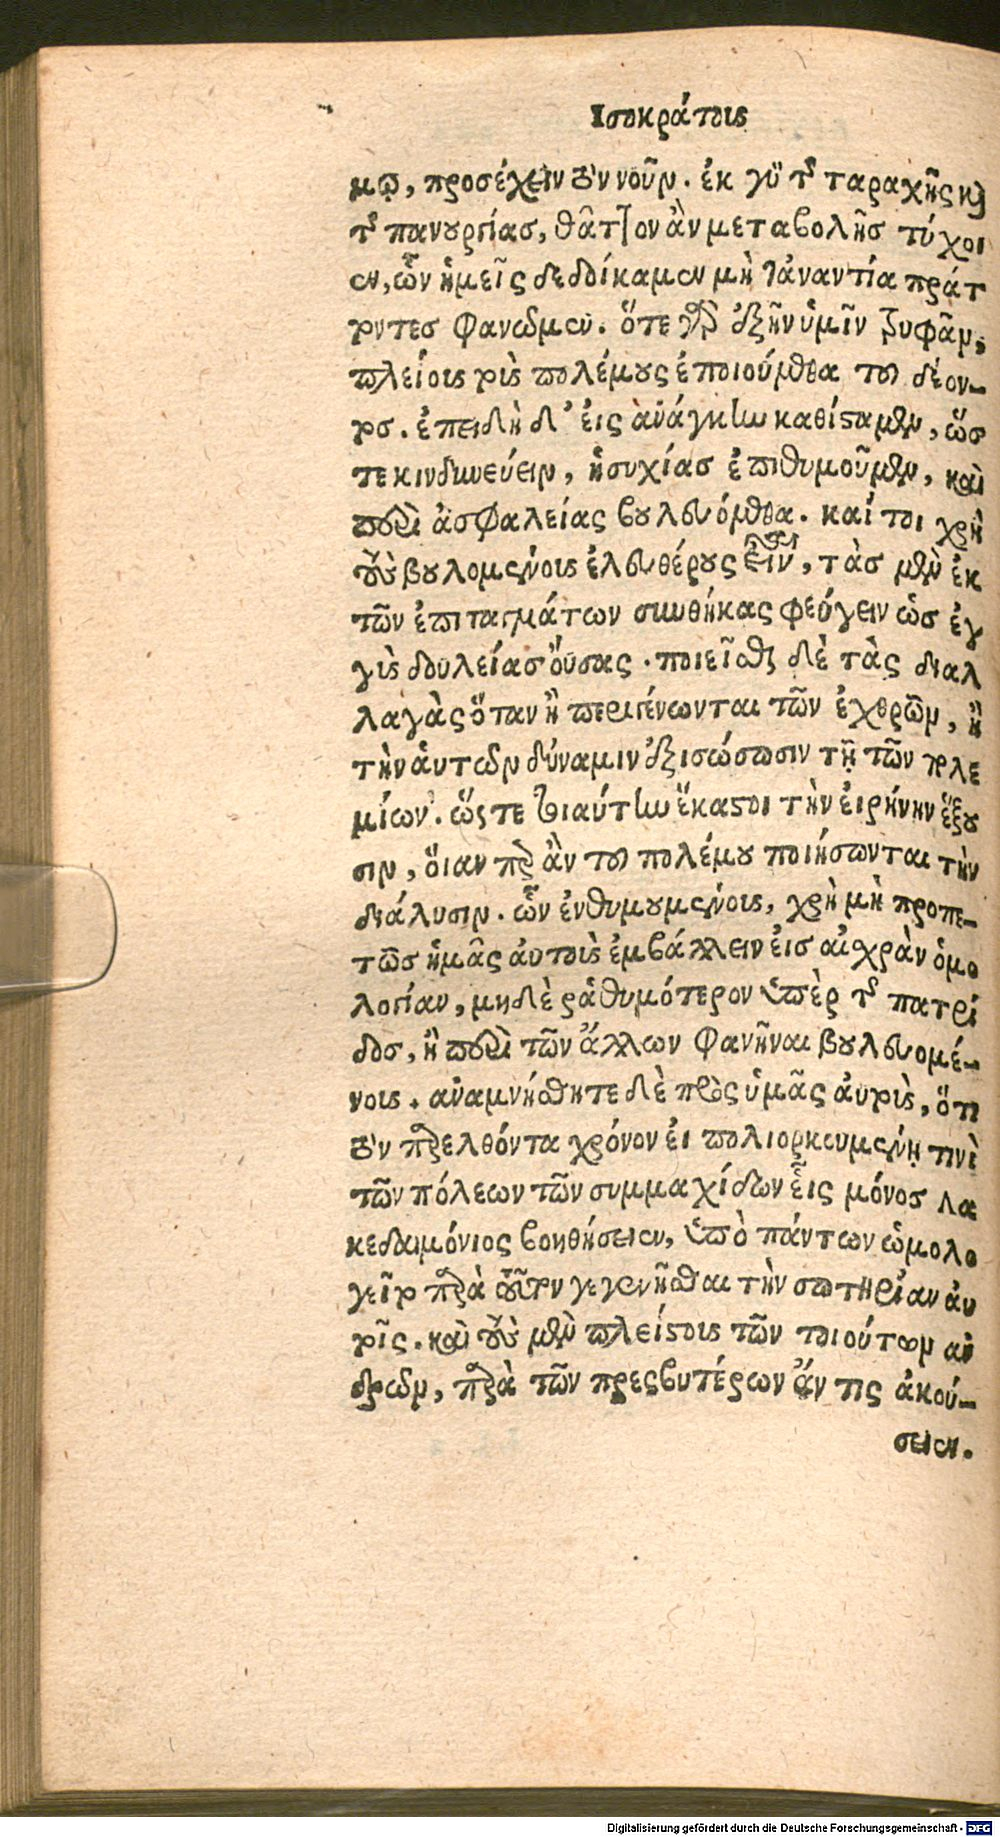 Ισοκράτους
μῳ, προσέχειν τὸν νοῦν. ἐκ γὸ τῆς ταραχῆς καὶ
τῆς πανουργίας, θᾶττον ἂν μεταβολῆς τύχοι
εν, ὧν ἡμεῖς δεδοίκαμεν μὴ τἀναντία πράτ
τοντες φανῶμεν. ὅτε γὰρ ἐξῆν ὑμῖν τρυφᾶν,
πλείους τοὺς πολέμους ἐποιούμεθα τοῦ δέον-
τος. ἐπειδὴ δ' εἰς ἀνάγκην καθίσταμεν, ὥσ
τε κινδυνεύειν, ἡσυχίας ἐπιθυμοῦμεν, καὶ
περὶ ἀσφαλείας βουλευόμεθα. καί τοι χρὴ
τοὺς βουλομένους ἐλευθέρους εἶναι, τὰς μὲν ἐκ
τῶν ἐπιταγμάτων συνθήκας φεύγειν ὡς ἐγ
γὺς δουλείας οὔσας. ποιεῖσθαι δὲ τὰς διαλ
λαγὰς ὅταν ἢ περιγένωνται τῶν ἐχθρῶν, ἢ
τὴν ἁυτῶν δύναμιν ἐξισώσωσιν τῇ τῶν πολε
μίων. ὥςτε τοιαύτην ἕκαστοι τὴν εἰρήνην ἕξου
σιν, ὅιαν περ ἂν τοῦ πολέμου ποιήσωνται τὴν
διάλυσιν. ὧν ἐνθυμουμένους, χρὴ μὴ προπε-
τῶς ἡμᾶς αὐτοὺς ἐμβάλλειν εἰς αἰσχρὰν ὁμο
λογίαν, μηδὲ ῥᾳθυμότερον ὑπὲρ τῆς πατρί
δος, ἢ περὶ τῶν ἄλλων φανῆναι βουλευομέ-
νους. ἀναμνήσθητε δὲ πρὸς ὑμᾶς αὐτοὺς, ὅτι
τὸν παρελθόντα χρόνον εἰ πολιορκουμένῃ τινὶ
τῶν πόλεων τῶν συμμαχίδων εἷς μόνος λα
κεδαιμόνιος βοηθήσειεν, ὑπὸ πάντων ὡμολο
γεῖτο παρὰ τοῦτον γεγενῆσθαι τὴν σωτηρίαν αὐ
τοῖς. καὶ τοὺς μὲν πλείστους τῶν τοιούτων αν
δρῶν, παρὰ τῶν πρεσβυτέρων ἄν τις ἀκού-
σειεν.
Digitalisierung gefördert durch die Deutsche Forschungsgemeinschaft - DFG